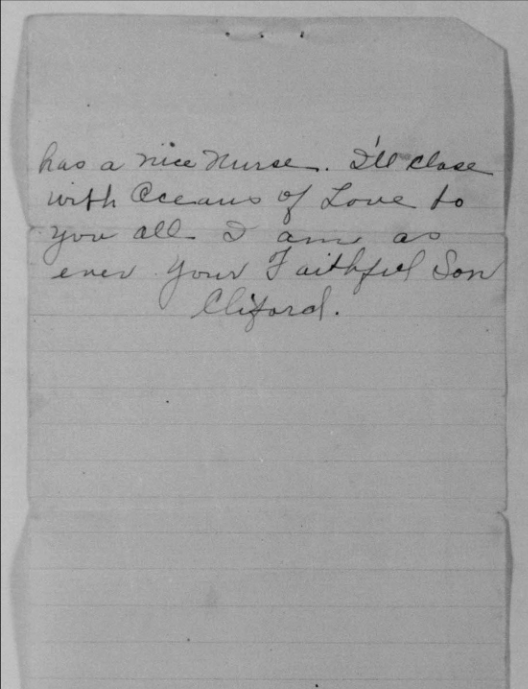 has a nice Nurse. I'll close
with Oceans of Love to
you all I am as
ever your Faithful Son
Cliford.